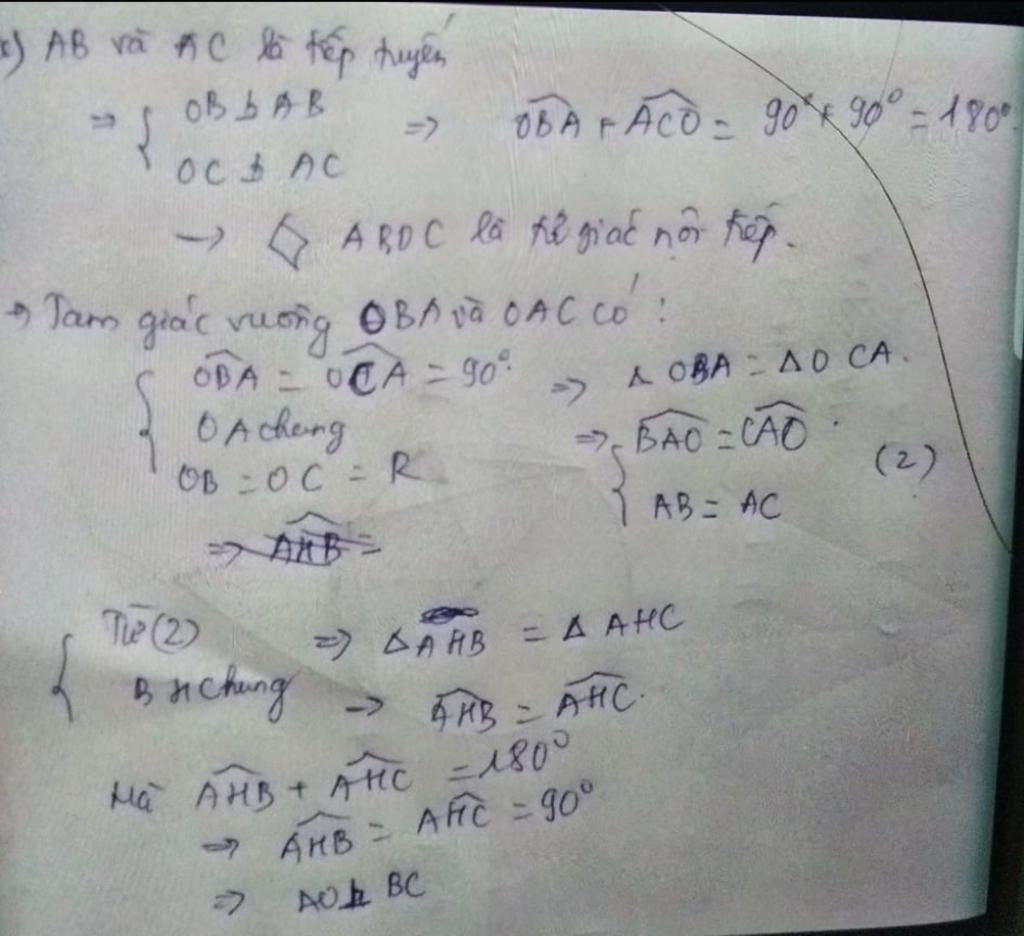 a) AB và AC là tiếp tuyến
=> { OB ⊥ AB
OC ⊥ AC
=> OBA + ACO = 90° + 90° = 180°
-> ◇ ABOC là tứ giác nội tiếp.
=> Tam giác vuông OBA và OAC có :
{ OBA = OCA = 90°
OA chung
OB = OC = R
=> Δ OBA = Δ OCA.
=> { BAO = CAO
AB = AC
(2)
=> AHB =
{ Từ (2)
BH chung
=> Δ AHB = Δ AHC
-> AHB = AHC.
Mà AHB + AHC = 180°
=> AHB = AHC = 90°
=> AO ⊥ BC